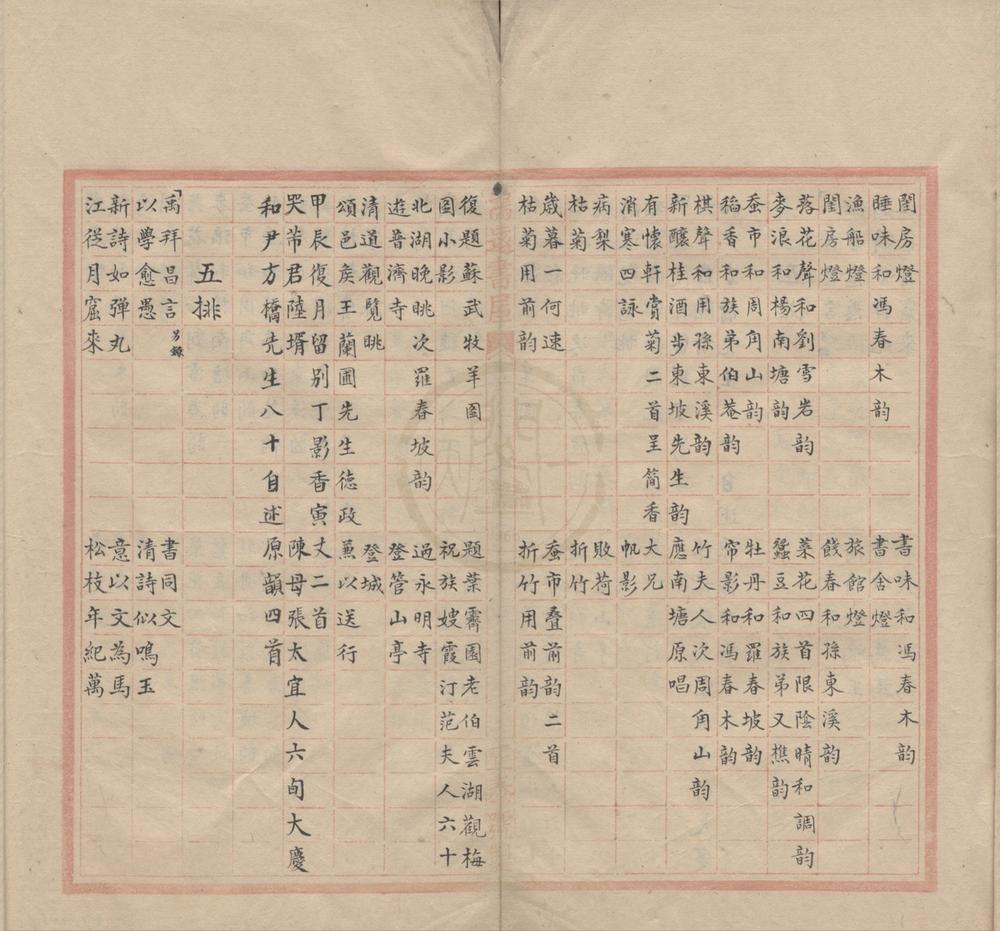 閨房燈　書味和馮春木韵
睡味和馮春木韵　書舍燈
漁船燈　旅館燈
閨房燈　餞春和孫東溪韵
落花聲和劉雪岩韵　菜花四首限陰晴和調韵
麥浪和楊南塘韵　蠶豆和族弟又樵韵
蚕市和周角山韵　牡丹和羅春坡韵
稻香和族弟伯菴韵　帘影和馮春木韵
棋聲和用孫東溪韵　竹夫人次周角山韵
新釀桂酒步東坡先生韵　應南塘原唱
有懷軒賞菊二首呈简香大兄
消寒四詠　帆影
病梨　敗荷
枯菊　折竹
歲暮一何速　蚕市叠前韵二首
枯菊用前韵　折竹用前韵
復題蘇武牧羊图　題葉霽園老伯雲湖觀梅
图小影　祝族嫂霞汀范夫人六十
北湖晚眺次羅春坡韵　過永明寺
遊普濟寺　登管山亭
清道觀覽眺　登城
頌邑矦王蘭圃先生德政兼以送行
甲辰復月留别丁影香寅丈二首
哭芾君陸壻　陳母張太宜人六旬大慶
和尹方橋先生八十自述原韻四首
五排
禹拜昌言另錄　書同文
以學愈愚　清詩似鳴玉
新詩如弹丸　意以文為馬
江從月窟來　松枝年紀萬